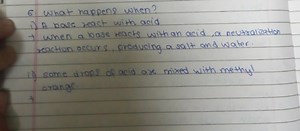 6- What happens when?
i) A base react with acid
→ when a base reacts with an acid, a neutralization
reaction occurs, producing a salt and water.
ii) some drops of acid are mixed with methyl
orange
→